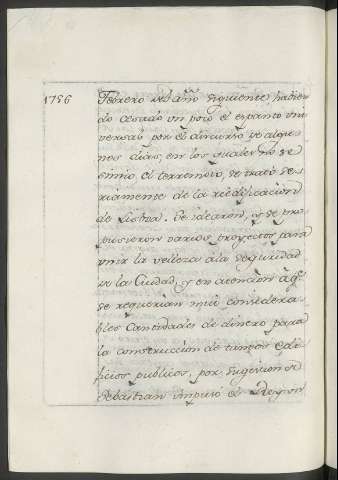 1756
Febrero del año siguiente, habien
do cesado un poco el espanto uni
versal por el discurso de algu
nos dias, en los quales no se
sintio el terremoto, se trató se
riamente de la reedificacion
de Lisboa. Se idearon, y se pro
pusieron varios proyectos para
unir la velleza à la seguridad
de la Ciudad, y en atencion à q.e
se requerian mui considera
bles Cantidades de dinero para
la construccion de tantos edi
ficios publicos, por sugestion de
Sebastian impuso el Rey un